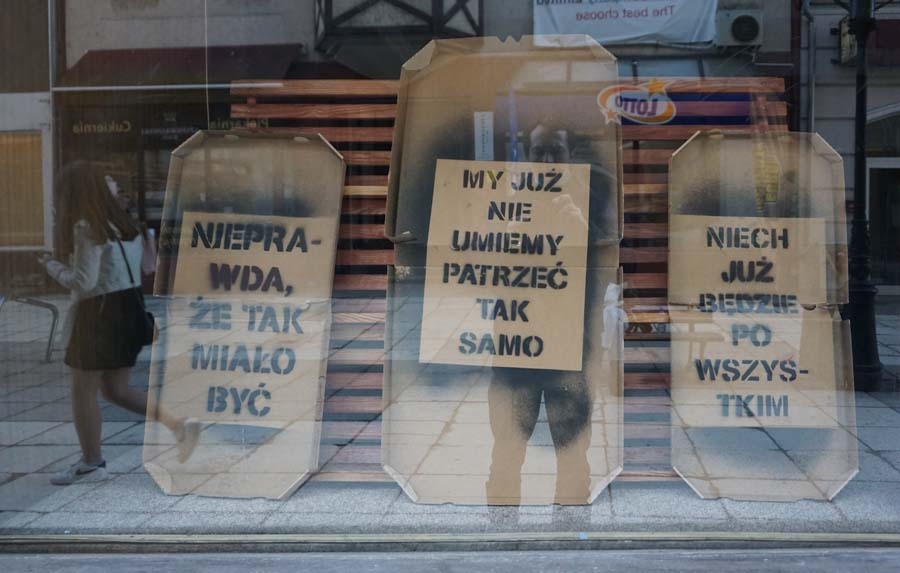 The best choose
LOTTO
Cukiernia
NIEPRA-
WDA,
ŻE TAK
MIAŁO
BYĆ
MY JUŻ
NIE
UMIEMY
PATRZEĆ
TAK
SAMO
NIECH
JUŻ
BĘDZIE
PO
WSZYS-
TKIM